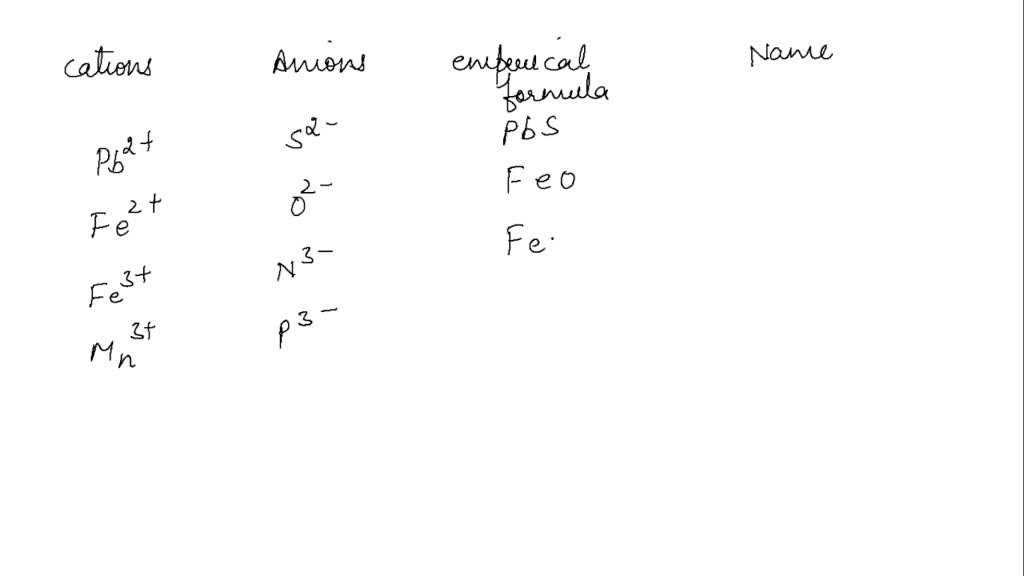 cations Anions emperical Name
formula
Pb²⁺ S²⁻ PbS
Fe²⁺ O²⁻ FeO
Fe³⁺ N³⁻ Fe
Mn³⁺ P³⁻